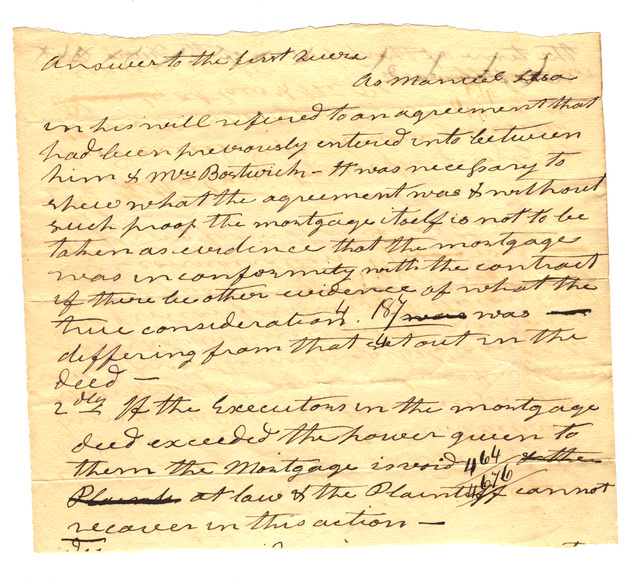 Answer to the first Quere
As Manuel Lisa
in his will refered to an agreement that
had been previously entered into between
him & Mrs Bostwick - It was necessary to
shew what the agreement was & without
such proof the mortgage itself is not to be
taken as evidence that the mortgage
was in conformity with the contract
if there be other evidence of what the
true consideration 4. 187 was was
differing from that set out in the
deed —
2dly If the Executors in the mortgage
deed exceeded the power given to
them the Mortgage is void 464 & the
Plaint at law & the Plaintiff 4676 cannot
recover in this action —